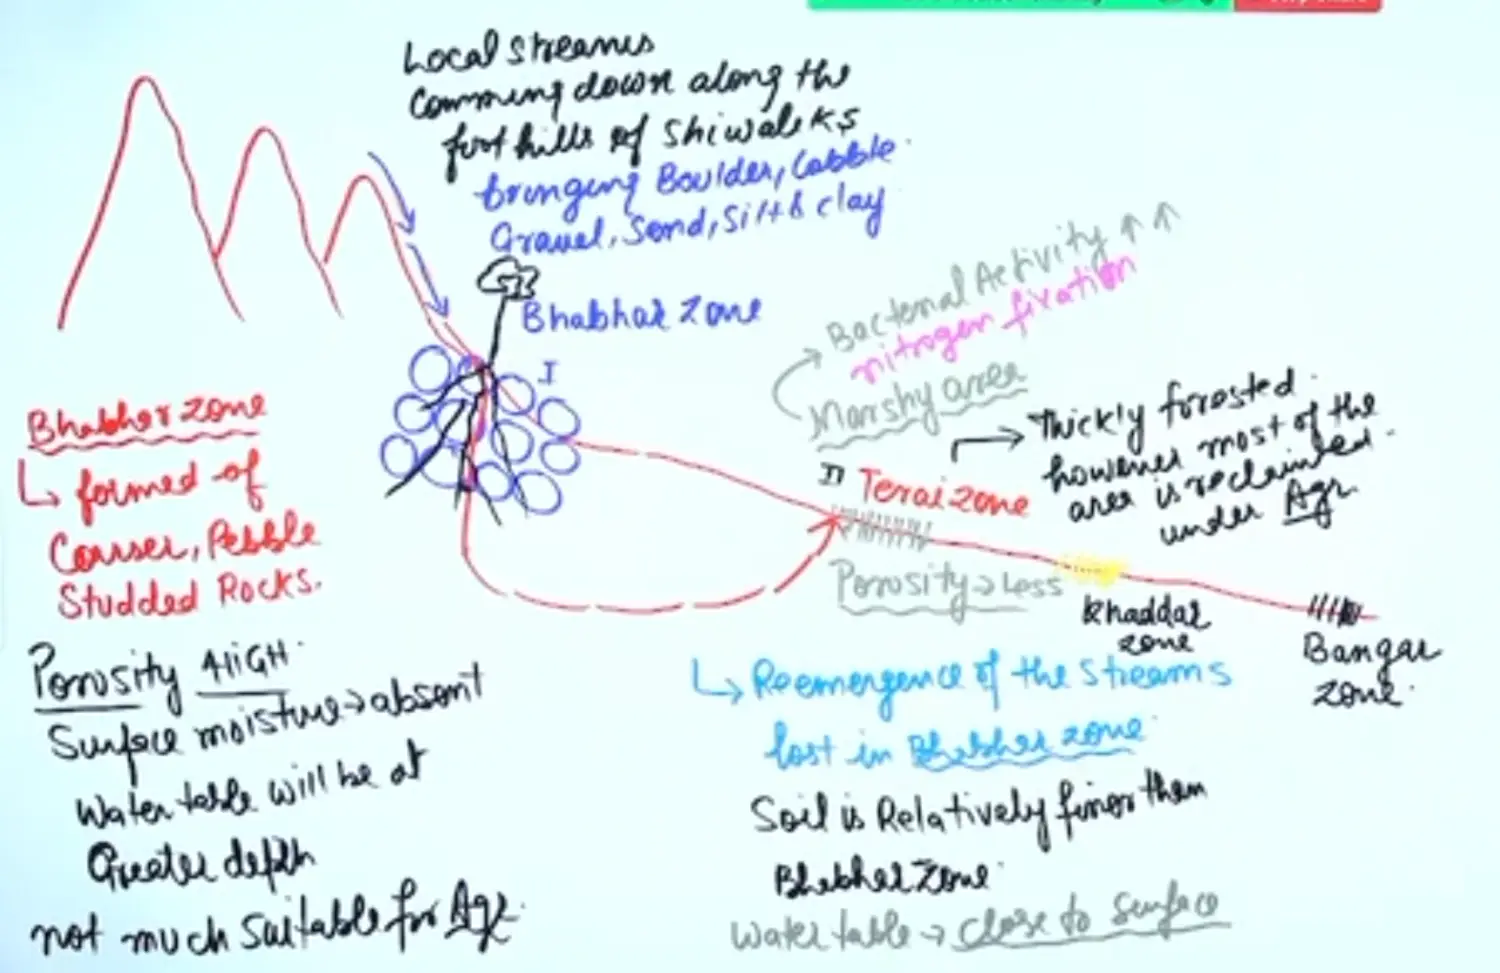 Local Streams
Comming down along the
foot hills of Shiwaleks
bringing Boulder, Cobble
Gravel, Sand, Silt & clay
Bhabhar Zone
I
Bacterial Activity ↑ ↑
nitrogen fixation
Marshy area
Thickly forested
however most of the
area is reclaimed
under Agr.
II Terai zone
Porosity → Less
Khaddar
zone
Bangar
zone.
Bhabher zone
formed of
Courser, Pebble
Studded Rocks.
Porosity HIGH
Surface moisture → absent
Water table will be at
Greater depth
not much suitable for Agr.
Reemergence of the Streams
lost in Bhabher zone
Soil is Relatively finer then
Bhabher Zone
Water table → close to surface